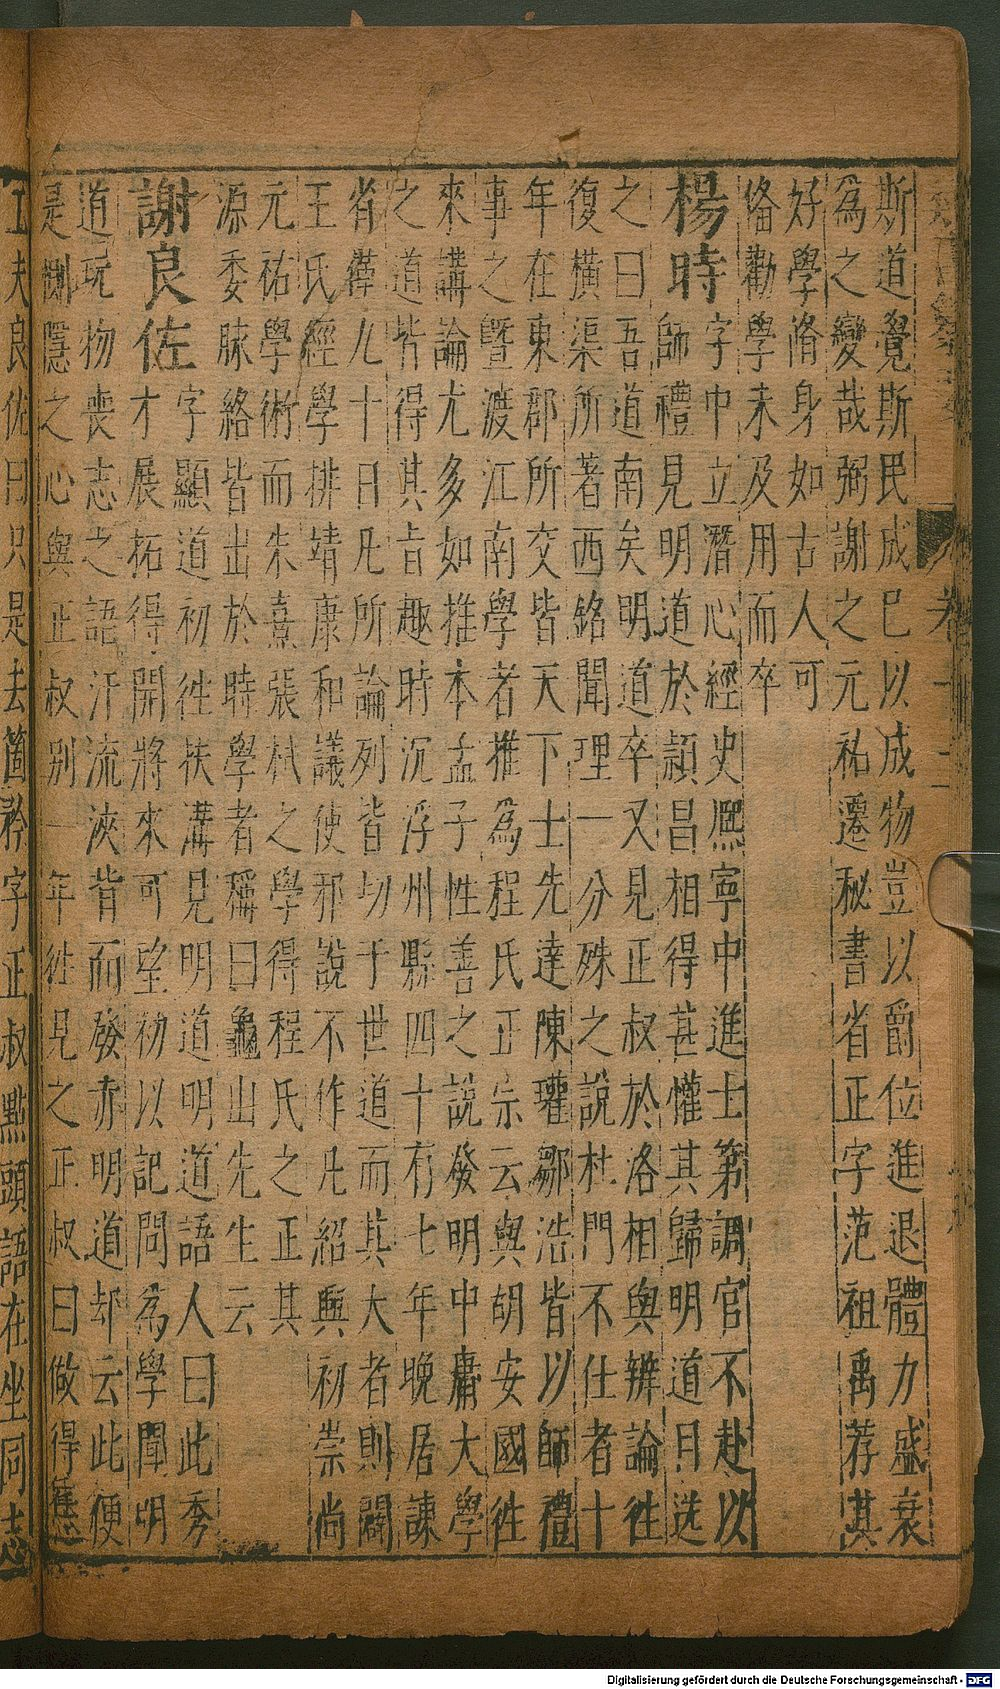 斯道覺斯民成巳以成物豈以爵位進退體力盛衰
為之變哉弼謝之元祐遷秘書省正字范祖禹荐其
好學脩身如古人可
俻勸學未及用而卒
楊時字中立潛心經史熈寧中進士第調官不赴以
師禮見明道於頴昌相得甚懽其歸明道目送
之曰吾道南矣明道卒又見正叔於洛相與辨論徃
復橫渠所著西銘聞理一分殊之說杜門不仕者十
年在東郡所交皆天下士先達陳瓘鄒浩皆以師禮
事之曁渡江南學者推為程氏正宗云與胡安國徃
來講論尤多如推本孟子性善之說發明中庸大學
之道皆得其旨趣時沉浮州縣四十有七年晚居諫
省僅九十日凡所論列皆切于世道而其大者則闢
王氏經學排靖康和議使邪說不作凡紹興初崇尚
元祐學術而朱熹張栻之學得程氏之正其
源委脉絡皆出於時學者稱曰龜山先生云
謝良佐字顯道初徃扶溝見明道明道語人曰此秀
才展拓得開將來可望初以記問為學聞明
道玩物喪志之語汗流浹背而發赤明道却云此便
是惻隱之心與正叔别一年徃見之正叔曰做得
工夫良佐曰只是去箇矜字正叔點頭語在坐同志
Digitalisierung gefördert durch die Deutsche Forschungsgemeinschaft - DFG